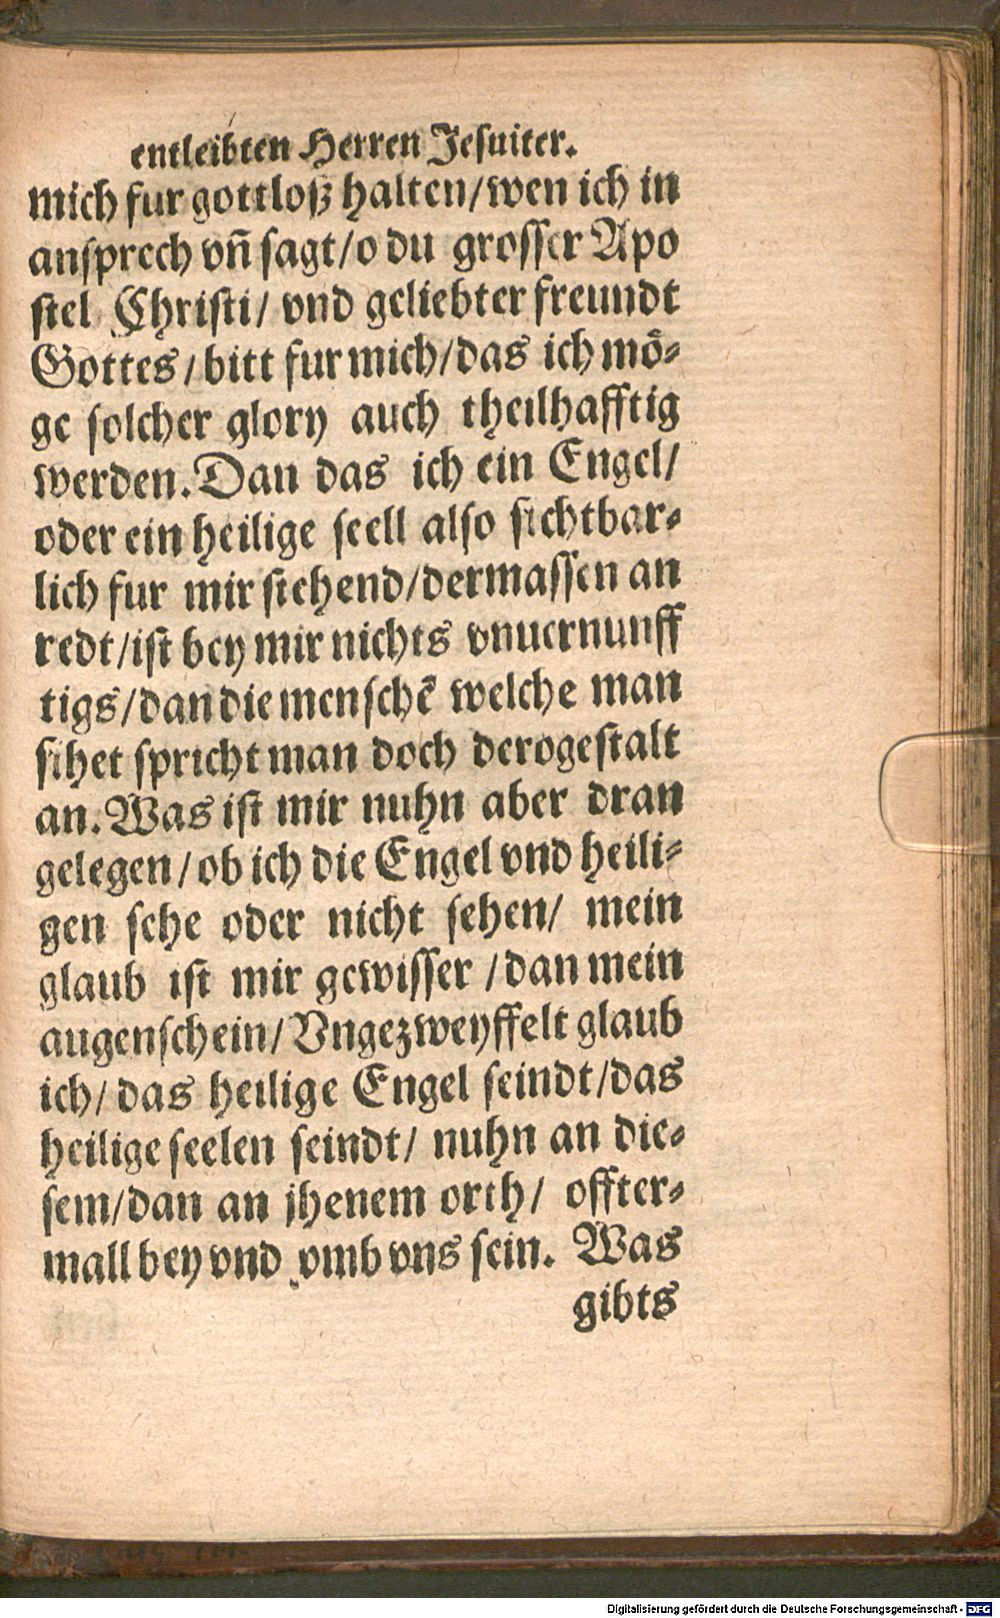 entleibten Herren Jesuiter.
mich fur gottloß halten/wen ich in
ansprech vñ sagt/o du grosser Apo
stel Christi/ vnd geliebter freundt
Gottes/bitt fur mich/das ich mö-
ge solcher glory auch theilhafftig
werden. Dan das ich ein Engel/
oder ein heilige seell also sichtbar-
lich fur mir stehend/dermassen an
redt/ist bey mir nichts vnuernunff
tigs/dan die menschē welche man
sihet spricht man doch derogestalt
an. Was ist mir nuhn aber dran
gelegen/ob ich die Engel vnd heili-
gen sehe oder nicht sehen/ mein
glaub ist mir gewisser/dan mein
augenschein/Vngezweyffelt glaub
ich/das heilige Engel seindt/das
heilige seelen seindt/ nuhn an die-
sem/dan an jhenem orth/ offter-
mall bey vnd vmb vns sein. Was
gibts
Digitalisierung gefördert durch die Deutsche Forschungsgemeinschaft - DFG